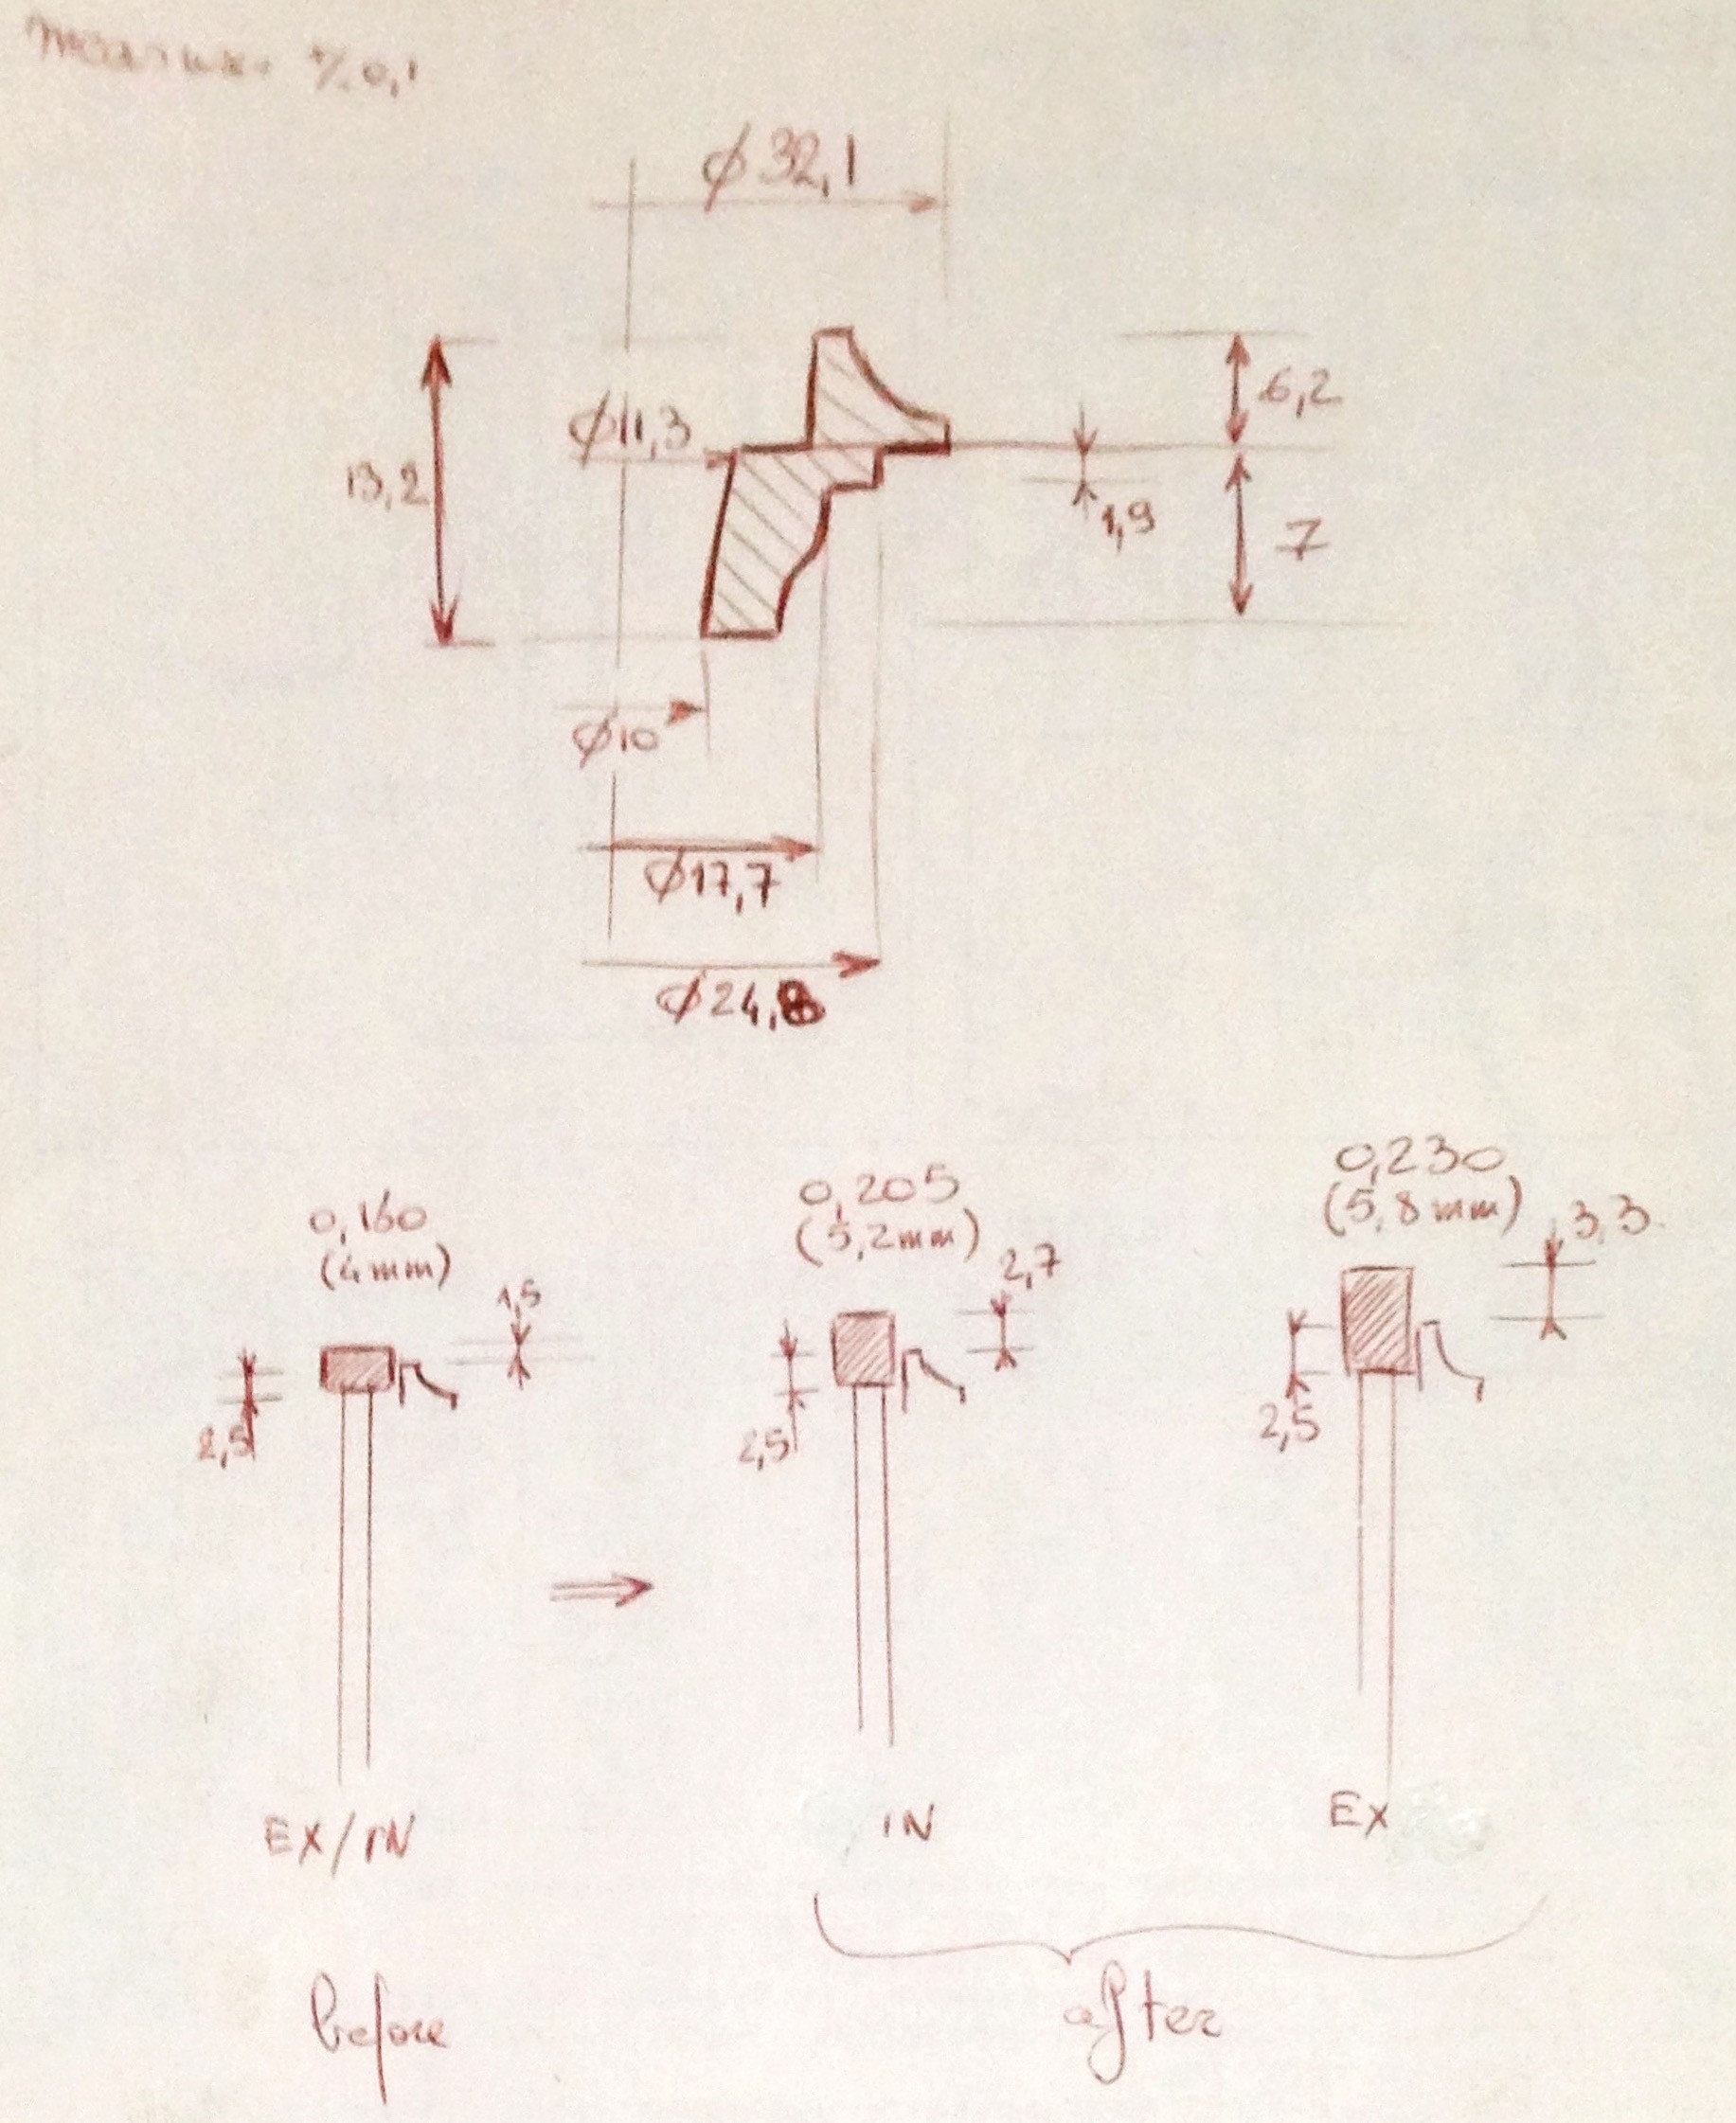 +/- 0,1
ϕ32,1
6,2
ϕ11,3
13,2
1,9
7
ϕ10
ϕ17,7
ϕ24,8
0,160
(4mm)
1,5
2,5
0,205
(5,2mm)
2,7
2,5
0,230
(5,8mm)
3,3
2,5
EX/IN
IN
EX
before
after